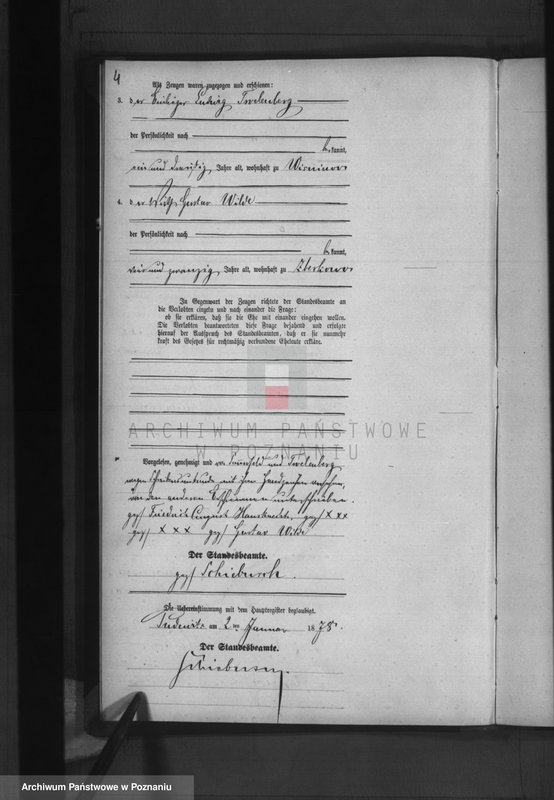 4
Als Zeugen waren zugezogen und erschienen:
3. der Ludwig
der Persönlichkeit nach
be kannt,
ein und dreißig Jahre alt, wohnhaft zu
4. der Gustav Wilde
der Persönlichkeit nach
be kannt,
und zwanzig Jahre alt, wohnhaft zu
In Gegenwart der Zeugen richtete der Standesbeamte an
die Verlobten einzeln und nach einander die Frage:
ob sie erklären, daß sie die Ehe mit einander eingehen wollen.
Die Verlobten beantworteten diese Frage bejahend und erfolgte
hierauf der Ausspruch des Standesbeamten, daß er sie nunmehr
kraft des Gesetzes für rechtmäßig verbundene Eheleute erkläre.
ARCHIWUM PAŃSTWOWE
W POZNANIU
Vorgelesen, genehmigt und von und
wegen Schreibensunkunde mit ihren Handzeichen versehen,
von den anderen unterschrieben.
gez/ Friedrich August gez/ xxx
gez/ xxx gez/ Gustav Wilde
Der Standesbeamte.
gez/
Die Uebereinstimmung mit dem Hauptregister beglaubigt.
am 2ten Januar 1878.
Der Standesbeamte.
Archiwum Państwowe w Poznaniu